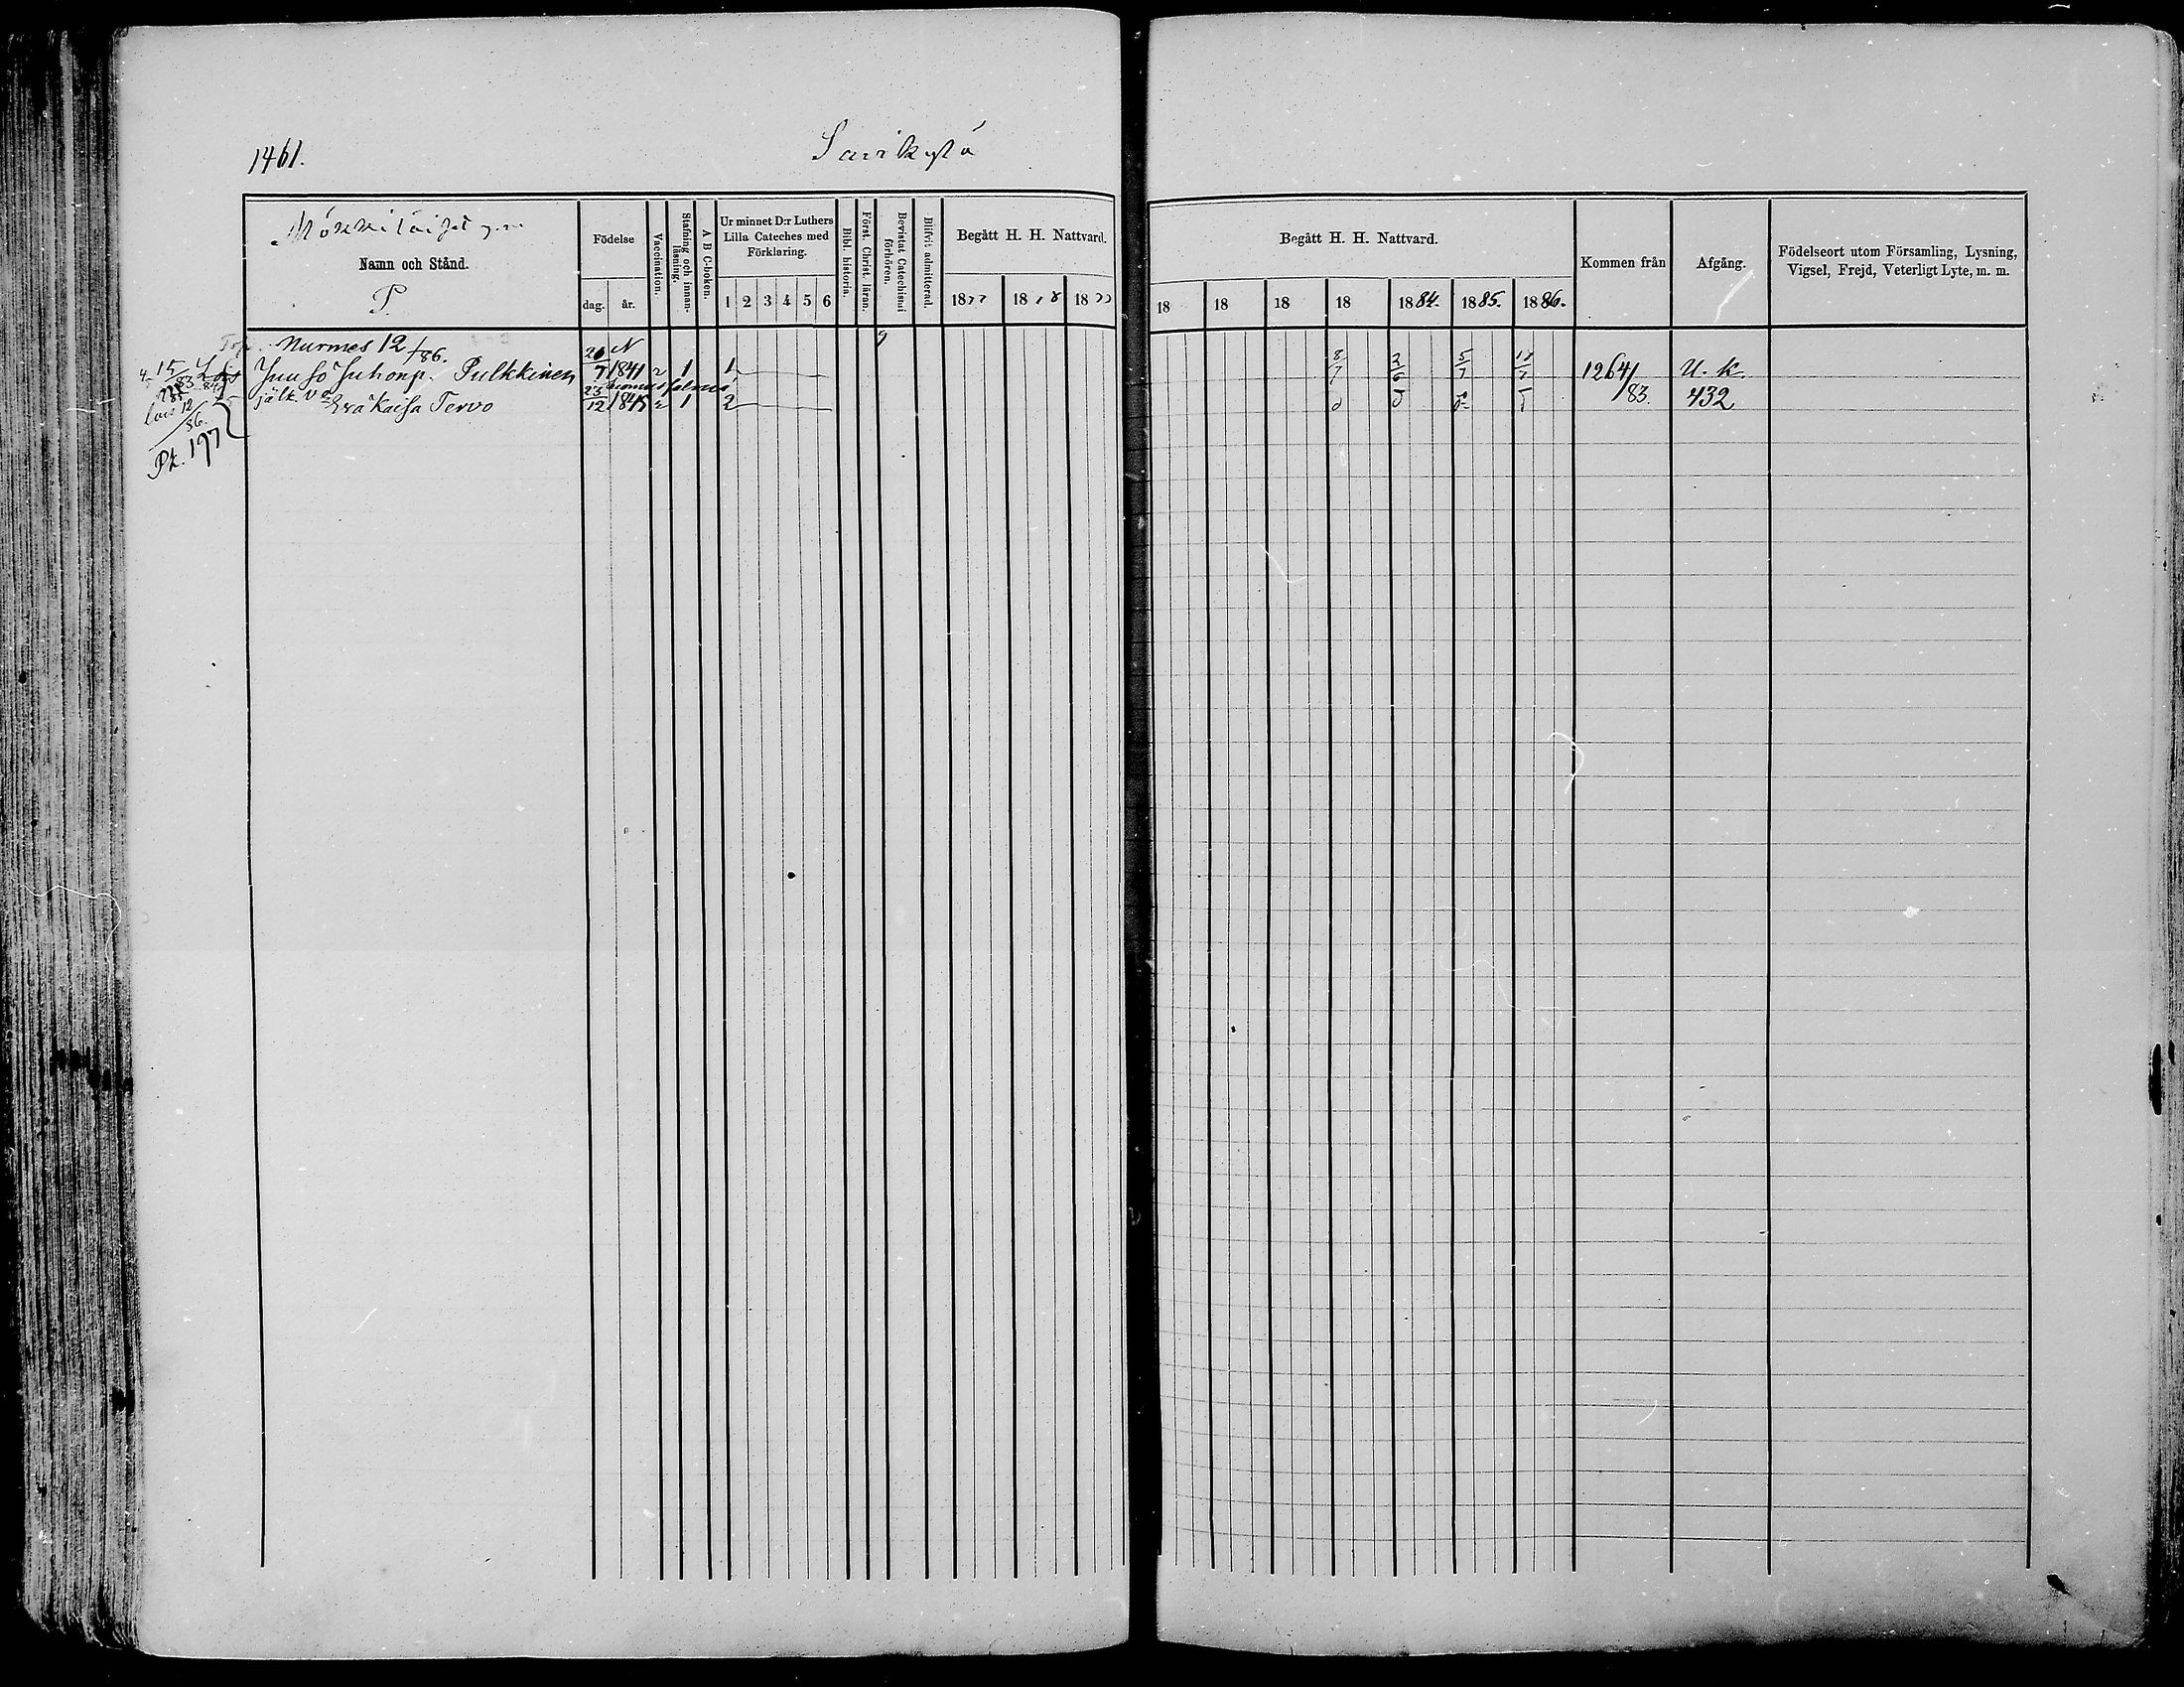 1461.
Savikylä
Namn och Stånd.
P.
Födelse
dag.
år.
Vaccination.
Stafning och innanläsning.
A B C-boken.
Ur minnet D:r Luthers
Lilla Cateches med
Förklaring.
1 2 3 4 5 6
Bibl. historia.
Först. Christ. läran.
Bevistat Catechismi förhören.
Blifvit admitterad.
Begått H. H. Nattvard.
1877 1878 18
Begått H. H. Nattvard.
18 18 18 18 1884. 1885. 1886.
Kommen från
Afgång.
Födelseort utom Församling, Lysning,
Vigsel, Frejd, Veterligt Lyte, m. m.
Nurmes 12/86.
Juuso Juhonp. Pulkkinen 7 1841 1 1 8/7 5/7 1264/83. U. k. 432
jälk. Vo Eva Kaisa Tervo 25/12 1845 1 2
Pk. 197